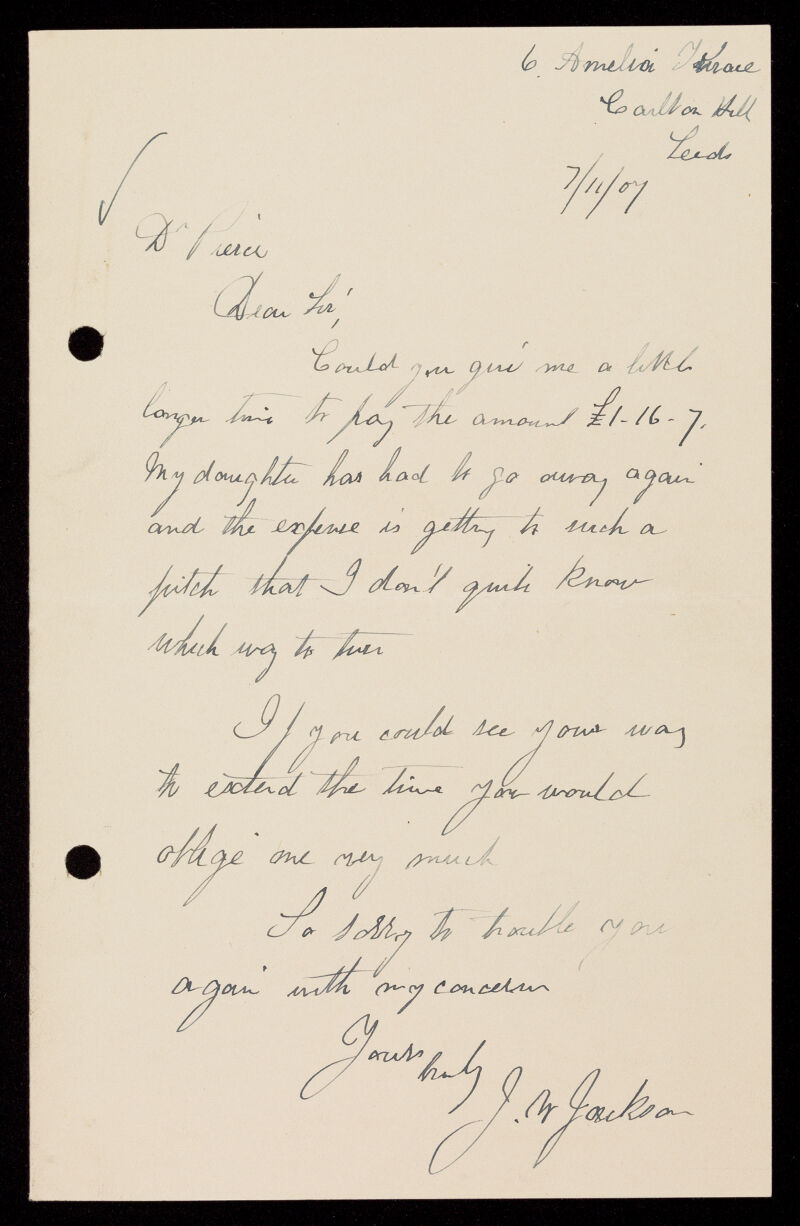 6. Amelia Terrace
Carlton Hill
Leeds
7/11/07
Dr Pierce
Dear Sir,
Could you give me a little
longer time to pay the amount £1-16-7.
My daughter has had to go away again
and the expense is getting to such a
pitch that I don't quite know
which way to turn
If you could see your way
to extend the time you would
oblige me very much
So sorry to trouble you
again with my concerns
Yours
truly
J. W Jackson